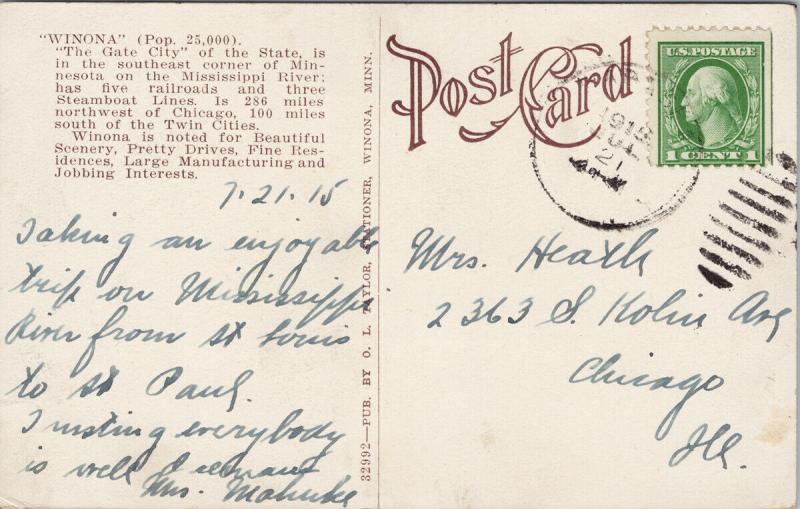 "WINONA" (Pop. 25,000).
"The Gate City" of the State, is
in the southeast corner of Min-
nesota on the Mississippi River;
has five railroads and three
Steamboat Lines. Is 286 miles
northwest of Chicago, 100 miles
south of the Twin Cities.
Winona is noted for Beautiful
Scenery, Pretty Drives, Fine Res-
idences, Large Manufacturing and
Jobbing Interests.
7.21.15
Taking an enjoyable
trip on Mississippi
River from St Louis
to St Paul.
Trusting everybody
is well I remain
Mrs.
32992—PUB. BY O. L. TAYLOR, STATIONER, WINONA, MINN.
Post Card
U.S. POSTAGE
1 CENT 1
21
Mrs. Heath
2363 S. Kolin Ave
Chicago
Ill.